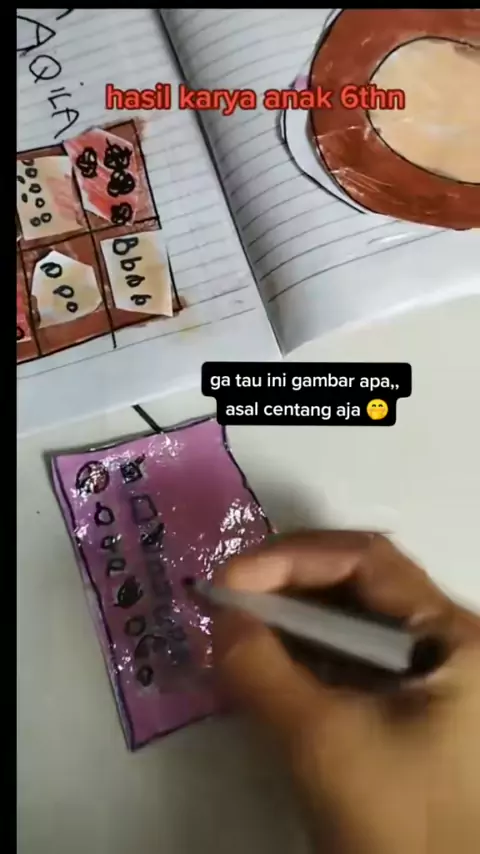 AQILA
hasil karya anak 6thn
Bbbb
ga tau ini gambar apa,,
asal centang aja 🤭